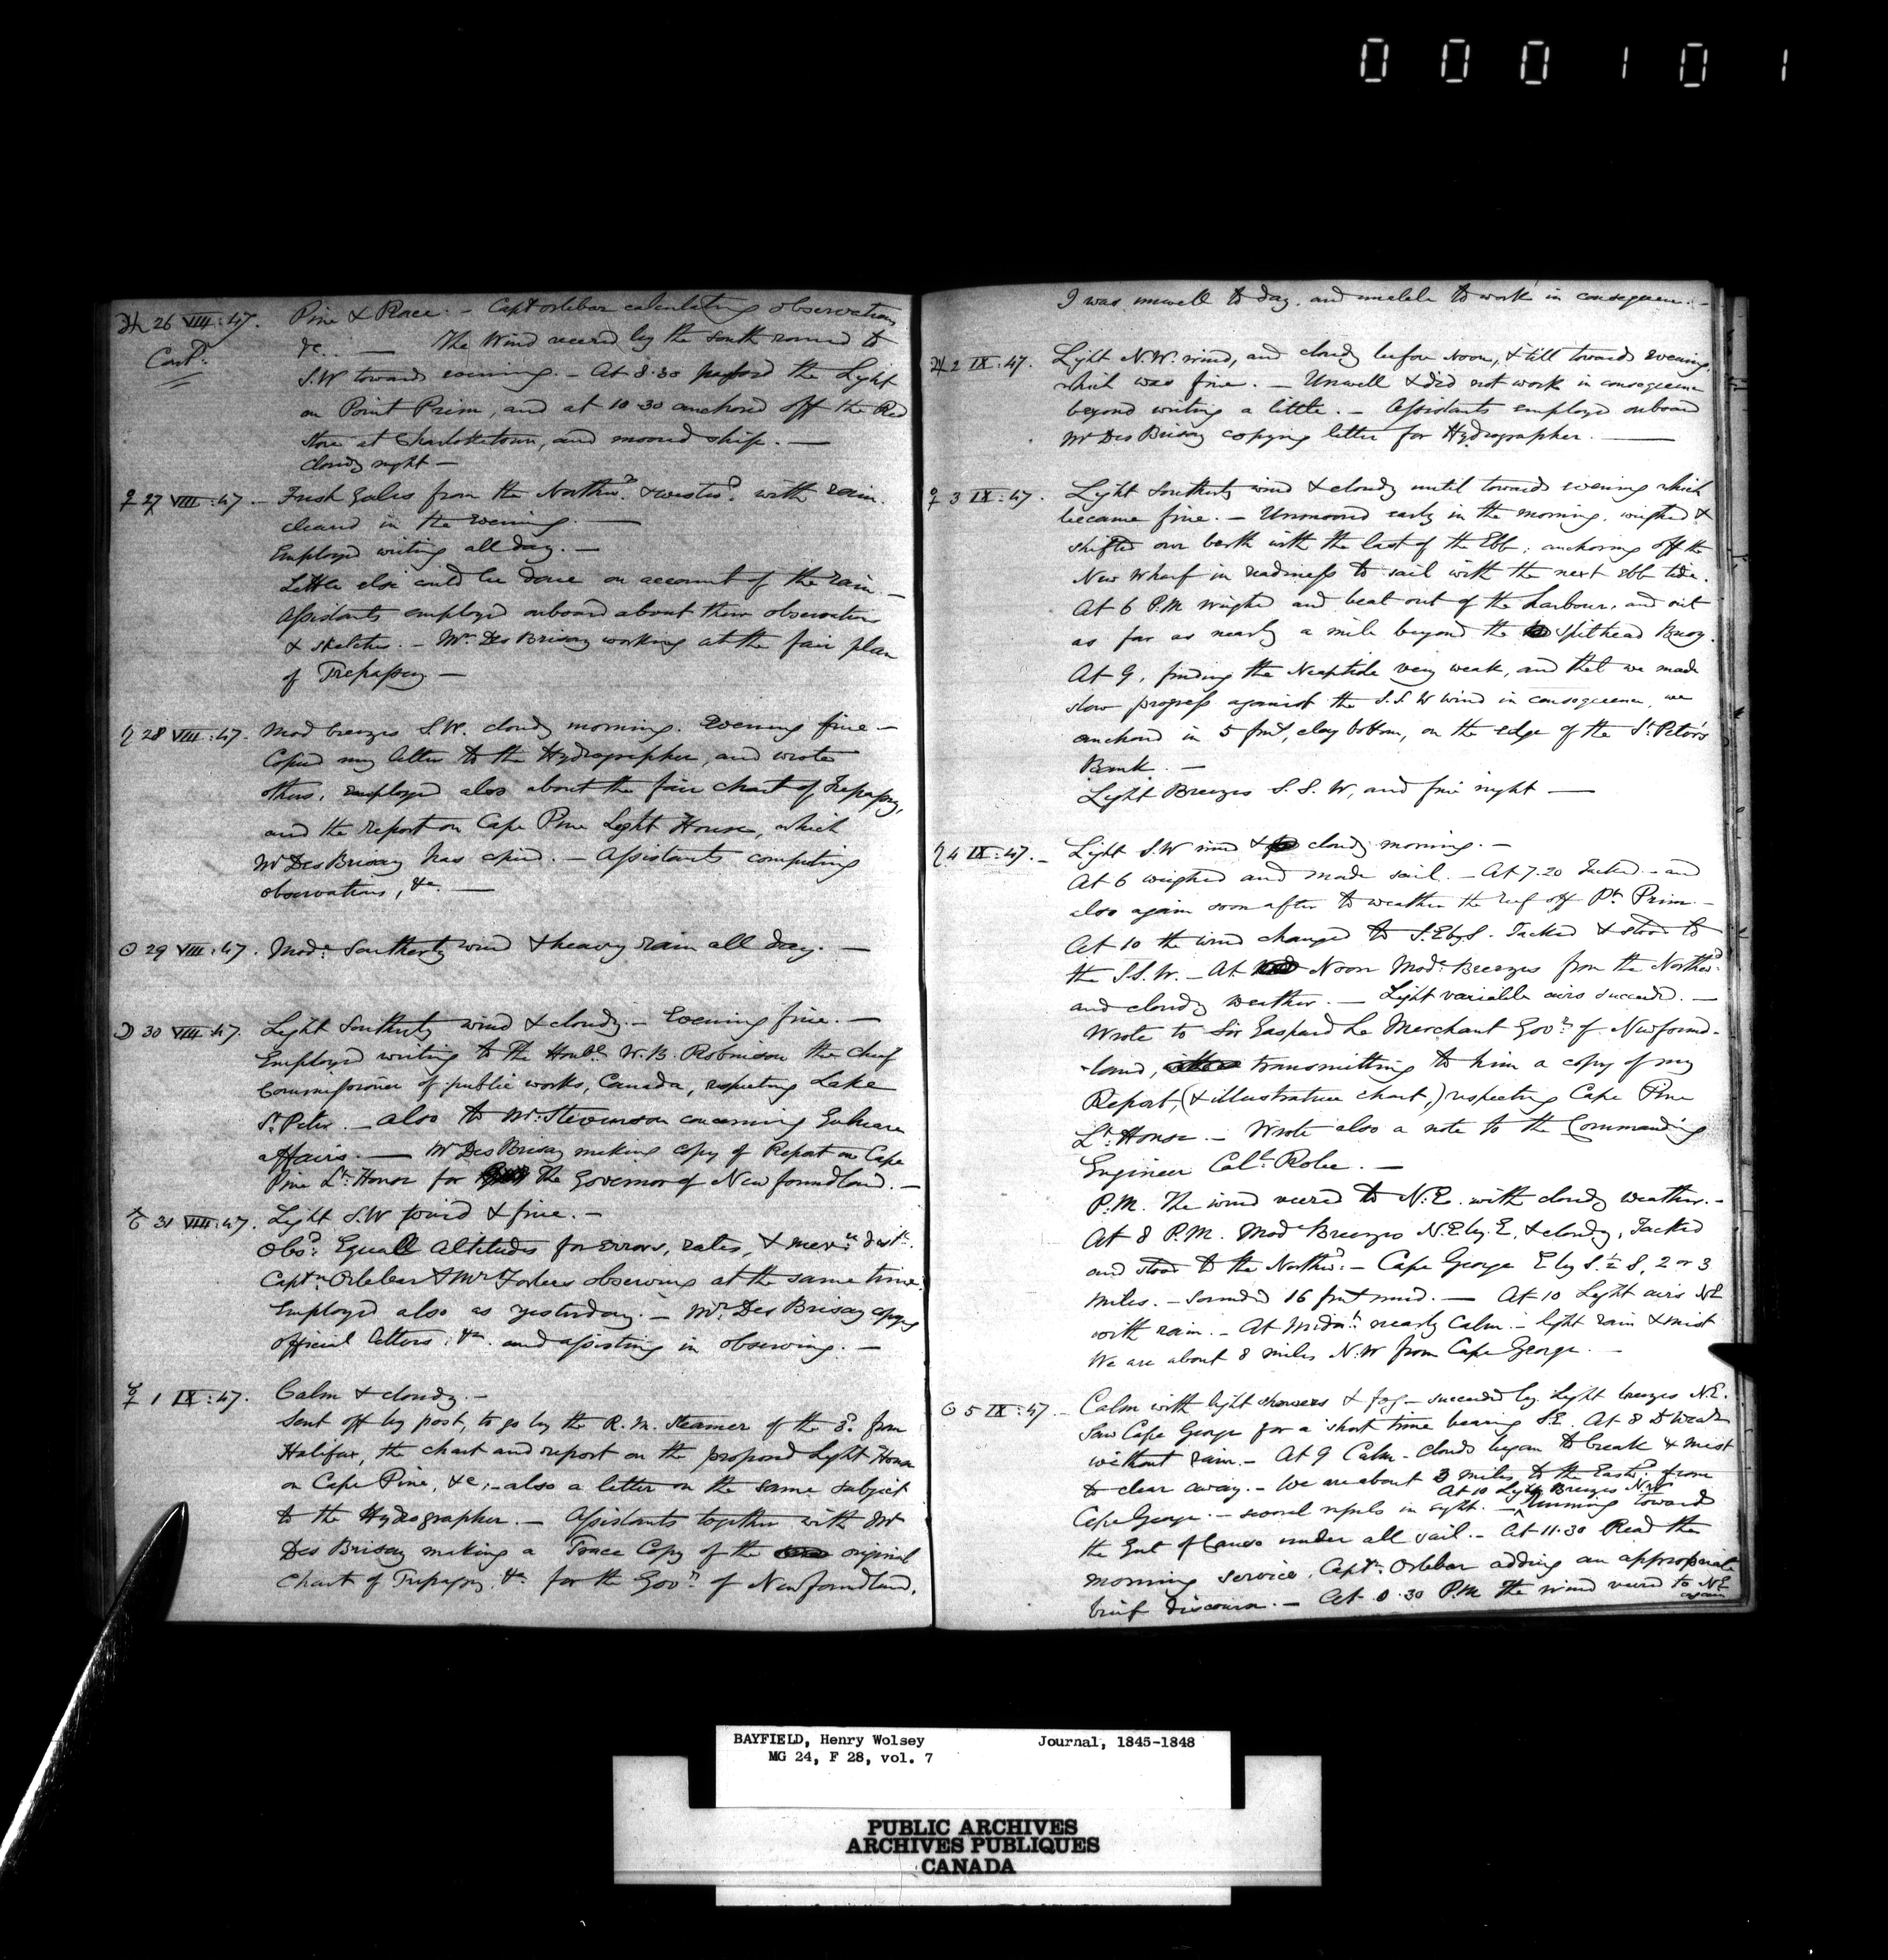 000101
♃ 26 VIII:47. Pine & Race. – Captn Orlebar calculating observations
Contd. &c. . — The Wind veered by the south round to
S.W towards evening. – At 8.30 passed the Light
on Point Prim, and at 10 30 anchored off the Red
Store at Charlottetown, and moored ship. —
Cloudy night –
♀ 27 VIII:47. – Fresh Gales from the Northwd. & westwd. with rain.
cleared in the Evening. —
Employed writing all day. –
Little else could be done on account of the rain –
Assistants employed onboard about their observations
& sketches. – Mr. Des Brisay working at the fair plan
of Trepassey –
♄ 28 VIII:47. Mod breezes S.W. cloudy morning. Evening fine –
Copied my letter to the Hydrographer, and wrote
others, employed also about the fair chart of Trepassey,
and the report on Cape Pine Light House, which
Mr Des Brisay has copied. – Assistants computing
observations, &c. —
☉ 29 VIII:47. Mode. Southerly wind & heavy rain all day. —
☽ 30 VIII:47. Light Southerly wind & cloudy. – Evening fine. —
Employed writing to The Honble. W. B. Robinson the chief
Commissioner of public works, Canada, respecting Lake
St. Peter. – also to Mr. Stevenson concerning
affairs. — Mr Des Brisay making copy of Report on Cape
Pine Lt. House for the Governor of Newfoundland. –
♂ 31 VIII:47. Light S.W wind & fine. –
Obsd. Equall Altitudes for errors, rates, & mern. distce.
Captn Orlebar & Mr Forbes observing at the same time.
Employed also as yesterday. – Mr. Des Brisay copying
official letters, &c. and assisting in observing. –
☿ 1 IX:47. Calm & cloudy. –
Sent off by post, to go by the R. M. Steamer of the 3d. from
Halifax, the chart and report on the proposed Light House
on Cape Pine, &c; – also a letter on the same subject
to the Hydrographer. – Assistants together with Mr
Des Brisay making a Trace Copy of the original
Chart of Trepassey, &c. for the Govr. of Newfoundland.
I was unwell to day, and unable to work in consequence. –
♃ 2 IX:47. Light N.W. wind, and cloudy before Noon, & till towards evening,
which was fine. – Unwell & did not work in consequence
beyond writing a little. – Assistants employed onboard
Mr Des Brisay copying letter for Hydrographer. —
♀ 3 IX:47. Light Southerly wind & cloudy until towards evening which
became fine. – Unmoored early in the morning, weighed &
shifted our berth with the last of the Ebb; anchoring off the
New Wharf in readiness to sail with the next ebb tide.
At 6 P.M weighed and beat out of the harbour, and out
as far as nearly a mile beyond the Spithead Buoy.
At 9, finding the Neaptide very weak, and that we made
slow progress against the S.S.W wind in consequence, we
anchored in 5 fms, clay bottom, on the edge of the St. Peter's
Bank. –
Light Breezes S.S.W, and fine night —
♄ 4 IX:47. – Light S.W wind & cloudy morning. –
At 6 weighed and made sail. – At 7.20 Tacked – and
also again soon after to weather the reef off Pt. Prim. –
At 10 the wind changed to S.EbyS. Tacked & stood to
the S.S.W. – At Noon Mode. Breezes from the Northwd.
and cloudy weather. – Light variable airs succeeded. –
Wrote to Sir Gaspard Le Merchant Govr. of Newfound-
-land, transmitting to him a copy of my
Report, (& illustrative chart,) respecting Cape Pine
Lt. House. – Wrote also a note to the Commanding
Engineer Coll. Robe. –
P.M. The wind veered to N.E. with cloudy weather. –
At 8 P.M. Mode Breezes N.E.by.E, & cloudy, Tacked
and stood to the Northwd. – Cape George E by S.½ S, 2 or 3
miles. – sounded 16 fms mud. — At 10 Light airs NE
with rain. – At Midnt. nearly Calm – light rain & mist
We are about 8 miles N.W from Cape George. –
☉ 5 IX:47. – Calm with light showers & fog – succeeded by light breezes N.E.
Saw Cape George for a short time bearing S.E. At 8 Do Weath
without rain. – At 9 Calm – clouds began to break & mist
to clear away. – We are about 3 miles to the Eastwd. from
At 10 Light Breezes NW
Cape George. – several vessels in sight. – Running toward
the Gut of Canso under all sail. – At 11.30 Read the
morning service, Captn. Orlebar adding an appropriate
brief discourse. – At 0.30 P.M the wind veered to NE
again
BAYFIELD, Henry Wolsey Journal, 1845-1848
MG 24, F 28, vol. 7
PUBLIC ARCHIVES
ARCHIVES PUBLIQUES
CANADA